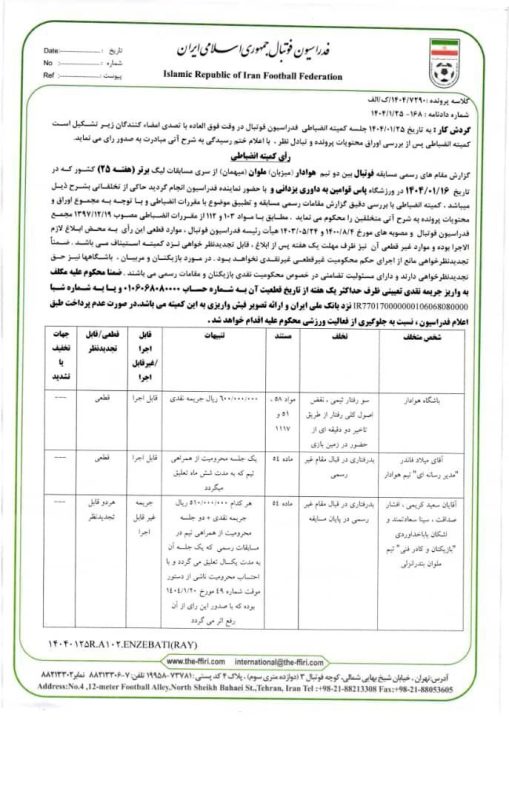 فدراسیون فوتبال جمهوری اسلامی ایران
Islamic Republic of Iran Football Federation
Date: تاریخ :
No شماره :
Ref پیوست :
کلاسه پرونده :۱۴۰۴/۷۲۹۰/ک/الف
شماره دادنامه : ۱۶۸- ۱۴۰۴/۱/۲۵
گردش کار : به تاریخ ۱۴۰۴/۰۱/۲۵ جلسه کمیته انضباطی فدراسیون فوتبال در وقت فوق العاده با تصدی امضاء کنندگان زیر تشکیل است
کمیته انضباطی پس از بررسی اوراق محتویات پرونده و تبادل نظر ، با اعلام ختم رسیدگی به شرح آتی مبادرت به صدور رای می نماید.
رأی کمیته انضباطی
گزارش مقام های رسمی مسابقه فوتبال بین دو تیم هوادار (میزبان) ملوان (میهمان) از سری مسابقات لیگ برتر (هفته ۲۵) کشور که در
تاریخ ۱۴۰۴/۰۱/۱۶ در ورزشگاه پاس قوامین به داوری یزدانی و با حضور نماینده فدراسیون انجام گردید حاکی از تخلفاتی بشرح ذیل
میباشد . کمیته انضباطی با بررسی دقیق گزارش مقامات رسمی مسابقه و تطبیق موضوع با مقررات انضباطی و با توجه به مجموع اوراق و
محتویات پرونده به شرح آتی متخلفین را محکوم می نماید . مطابق با مواد ۱۰۳ و ۱۱۲ از مقررات انضباطی مصوب ۱۳۹۷/۱۲/۱۹ مجمع
فدراسیون فوتبال و مصوبه های مورخ ۱۴۰۰/۸/۴ و ۱۴۰۳/۰۵/۲۴ هیأت رئیسه فدراسیون فوتبال ، موارد قطعی این رأی به محض ابلاغ لازم
الاجرا بوده و موارد غیر قطعی آن نیز ظرف مهلت یک هفته پس از ابلاغ ، قابل تجدیدنظر خواهی نزد کمیته استیناف می باشد. ضمناً
تجدیدنظرخواهی مانع از اجرای حکم محکومیت غیرقطعی غیرنقدی نخواهد بود . در مورد بازیکنان و مربیان ، باشگاهها نیز حق
تجدیدنظرخواهی دارند و دارای مسئولیت تضامنی در خصوص محکومیت نقدی بازیکنان و مقامات رسمی می باشند . ضمنا محکوم علیه مکلف
به واریز جریمه نقدی تعیینی ظرف حداکثر یک هفته از تاریخ قطعیت آن به شماره حساب ۰۱۰۶۰۶۸۰۸۰۰۰۰ و یا به شماره شبا
IR770170000000106068080000 نزد بانک ملی ایران و ارائه تصویر فیش واریزی به این کمیته می باشد.در صورت عدم پرداخت طبق
اعلام فدراسیون ، نسبت به جلوگیری از فعالیت ورزشی محکوم علیه اقدام خواهد شد .
شخص متخلف تخلف مستند تنبیهات قابل اجرا /غیرقابل اجرا قطعی/قابل تجدیدنظر جهات تخفیف یا تشدید
باشگاه هوادار سو رفتار تیمی ، نقض اصول کلی رفتار از طریق تاخیر دو دقیقه ای از حضور در زمین بازی مواد ۵۸ ، ۵۱ و ۱۱۱۷ ۶۰۰/۰۰۰/۰۰۰ ریال جریمه نقدی قابل اجرا قطعی ----
آقای میلاد فاندر "مدیر رسانه ای" تیم هوادار بدرفتاری در قبال مقام غیر رسمی ماده ۵۴ یک جلسه محرومیت از همراهی تیم که به مدت شش ماه تعلیق میگردد قابل اجرا قطعی ----
آقایان سعید کریمی ، افشار صداقت ، سینا سعادتمند و اشکان باباخداوردی "بازیکنان و کادر فنی" تیم ملوان بندرانزلی بدرفتاری در قبال مقام غیر رسمی در پایان مسابقه ماده ۵۴ هر کدام ۵۱۰/۰۰۰/۰۰۰ ریال جریمه نقدی + دو جلسه محرومیت از همراهی تیم در مسابقات رسمی که یک جلسه آن به مدت یکسال تعلیق می گردد و با احتساب محرومیت ناشی از دستور موقت شماره ۴۹ مورخ ۱۴۰۴/۱/۲۰ بوده که با صدور این رای از آن رفع اثر می گردد جریمه غیر قابل اجرا هردو قابل تجدیدنظر ----
۱۴۰۴۰۱۲۵R.A۱۰۲.ENZEBATI(RAY)
www.the-ffiri.com international@the-ffiri.com
آدرس:تهران، خیابان شیخ بهایی شمالی، کوچه فوتبال ۳ (دوازده متری سوم) ، پلاک ۴ کد پستی: ۷۳۷۸۱-۱۹۹۵۸ تلفن: ۷-۸۸۲۱۳۳۰۶ نمابر:۸۸۲۱۳۳۰۲
Address:No.4 ,12-meter Football Alley,North Sheikh Bahaei St.,Tehran, Iran Tel :+98-21-88213308 Fax:+98-21-88053605